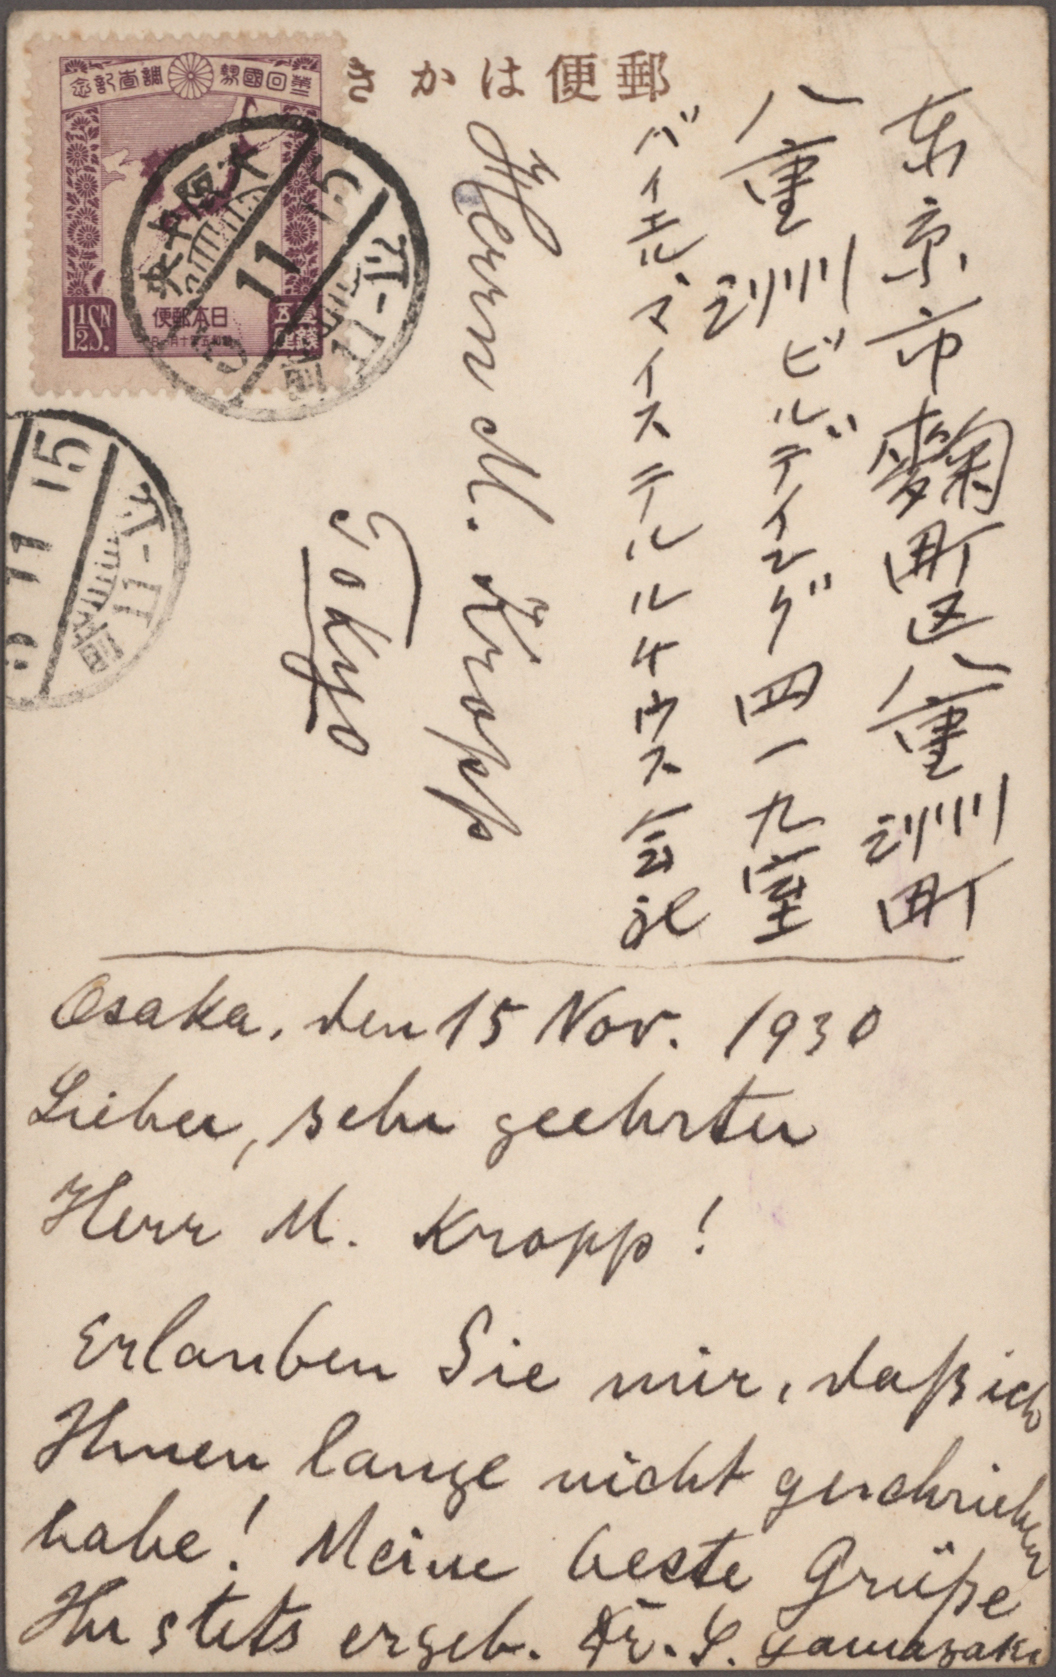 郵便はかき
第三回國勢調査記念
1½SN.
日本郵便
壹錢五厘
大阪中央
5.11.15
東京市麹町区八重洲町
八重洲ビルディング四一九室
バイエル、マイステルルチウス会社
Herrn M. Kropp
Tokyo
Osaka, den 15 Nov. 1930
Lieber, sehr geehrter
Herr M. Kropp!
Erlauben Sie mir, daß ich
Ihnen lange nicht geschrieben
habe! Meine beste Grüße
Ihr stets ergeb. Dr. S. Yamasaki